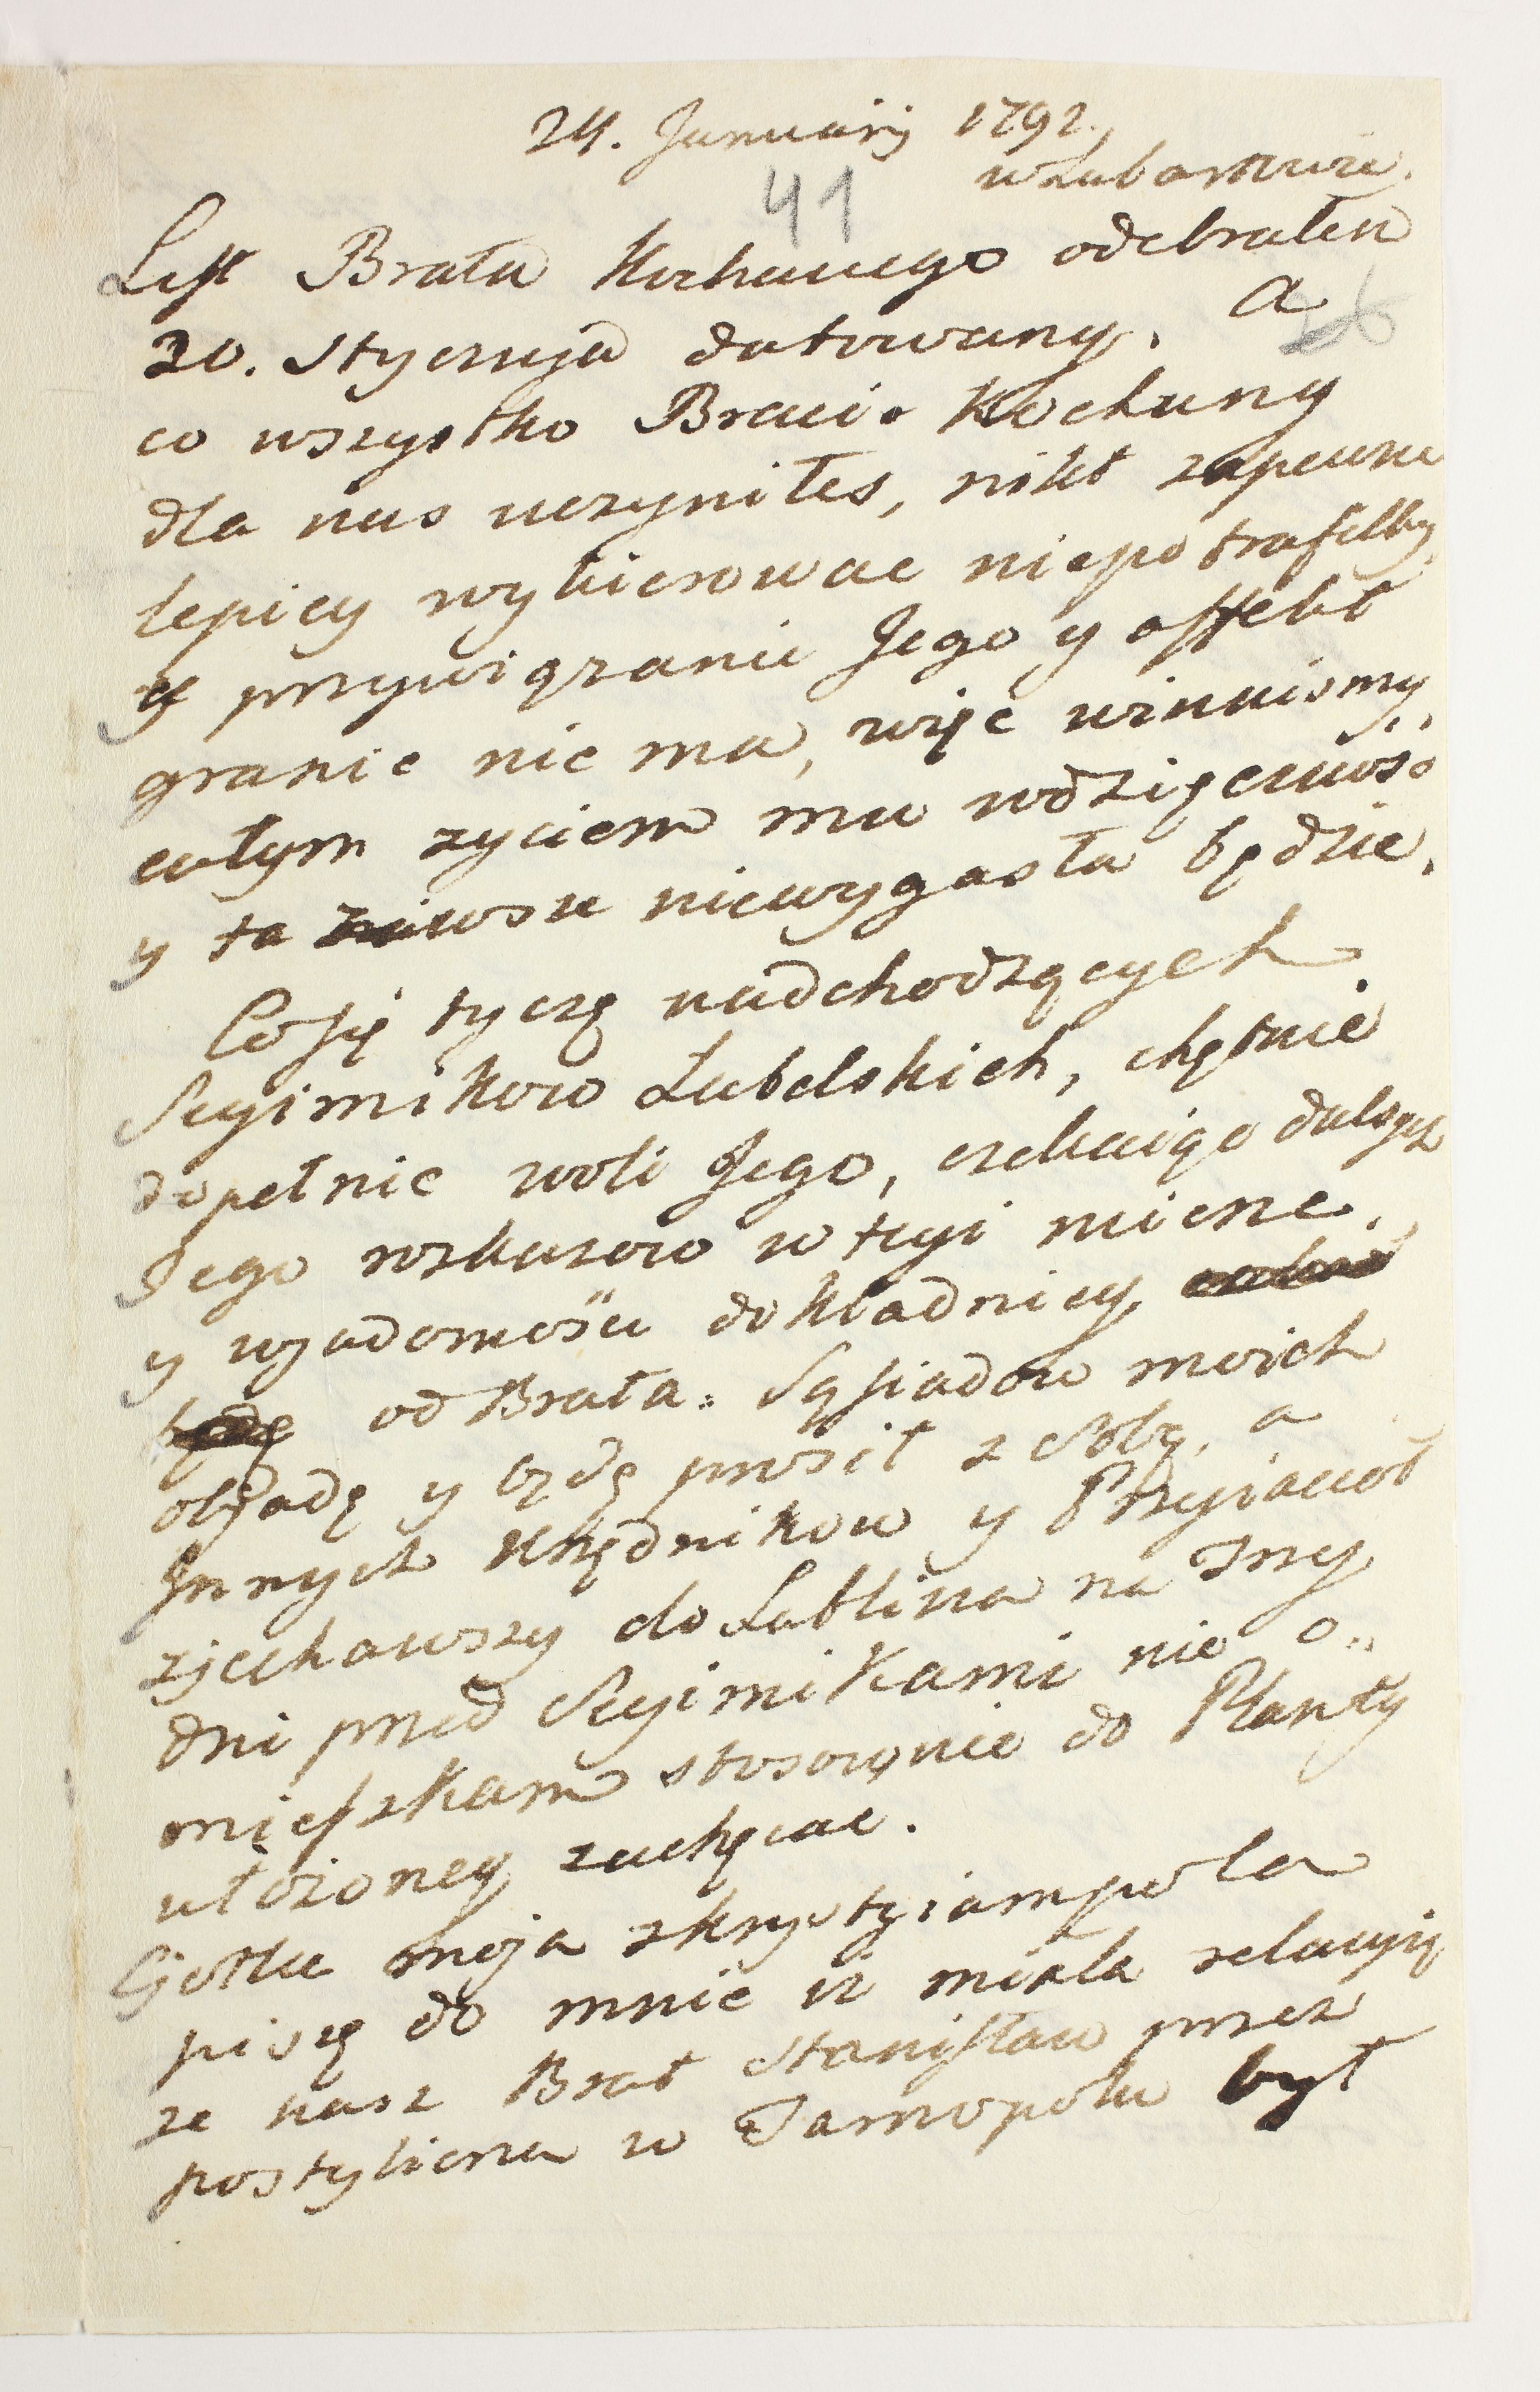 24. Januarij 1792.
w Lubartowie.
41
List Brata Kochanego odebrałem
20. Stycznja datowany. a
co wszystko Bracie Kochany
dla nas uczyniłes, nikt zapewne
lepiey wykierowac niepotrafiłby
y przywiązanie Jego y affekt
granic nie ma, więc winnismy
całym zyciem mu wdzięczność
y ta zawsze niewygasła będzie.
Co się tyczę nadchodzących
Seyimikow Lubelskich, chętnie
dopełnie woli Jego, czekaiąc dalszych
Jego rozkazow w teyi mierze.
y wjadomości dokładniey
od Brata. Sąsiadow moich
objadę y będę prosił z Sobą, a
Jnnych Urzędnikow y Przyiacioł
zjechawszy do Lublina na 3ny
dni przed Seyimikami nie o„
mieszkam stosownie do Planty
ułożoney zachęcac.
Cjotka moja z krystyiampola
piszę do mnie iż miała relacyią
ze nasz Brat Stanisław przez
postyliena w Tarnopolu był